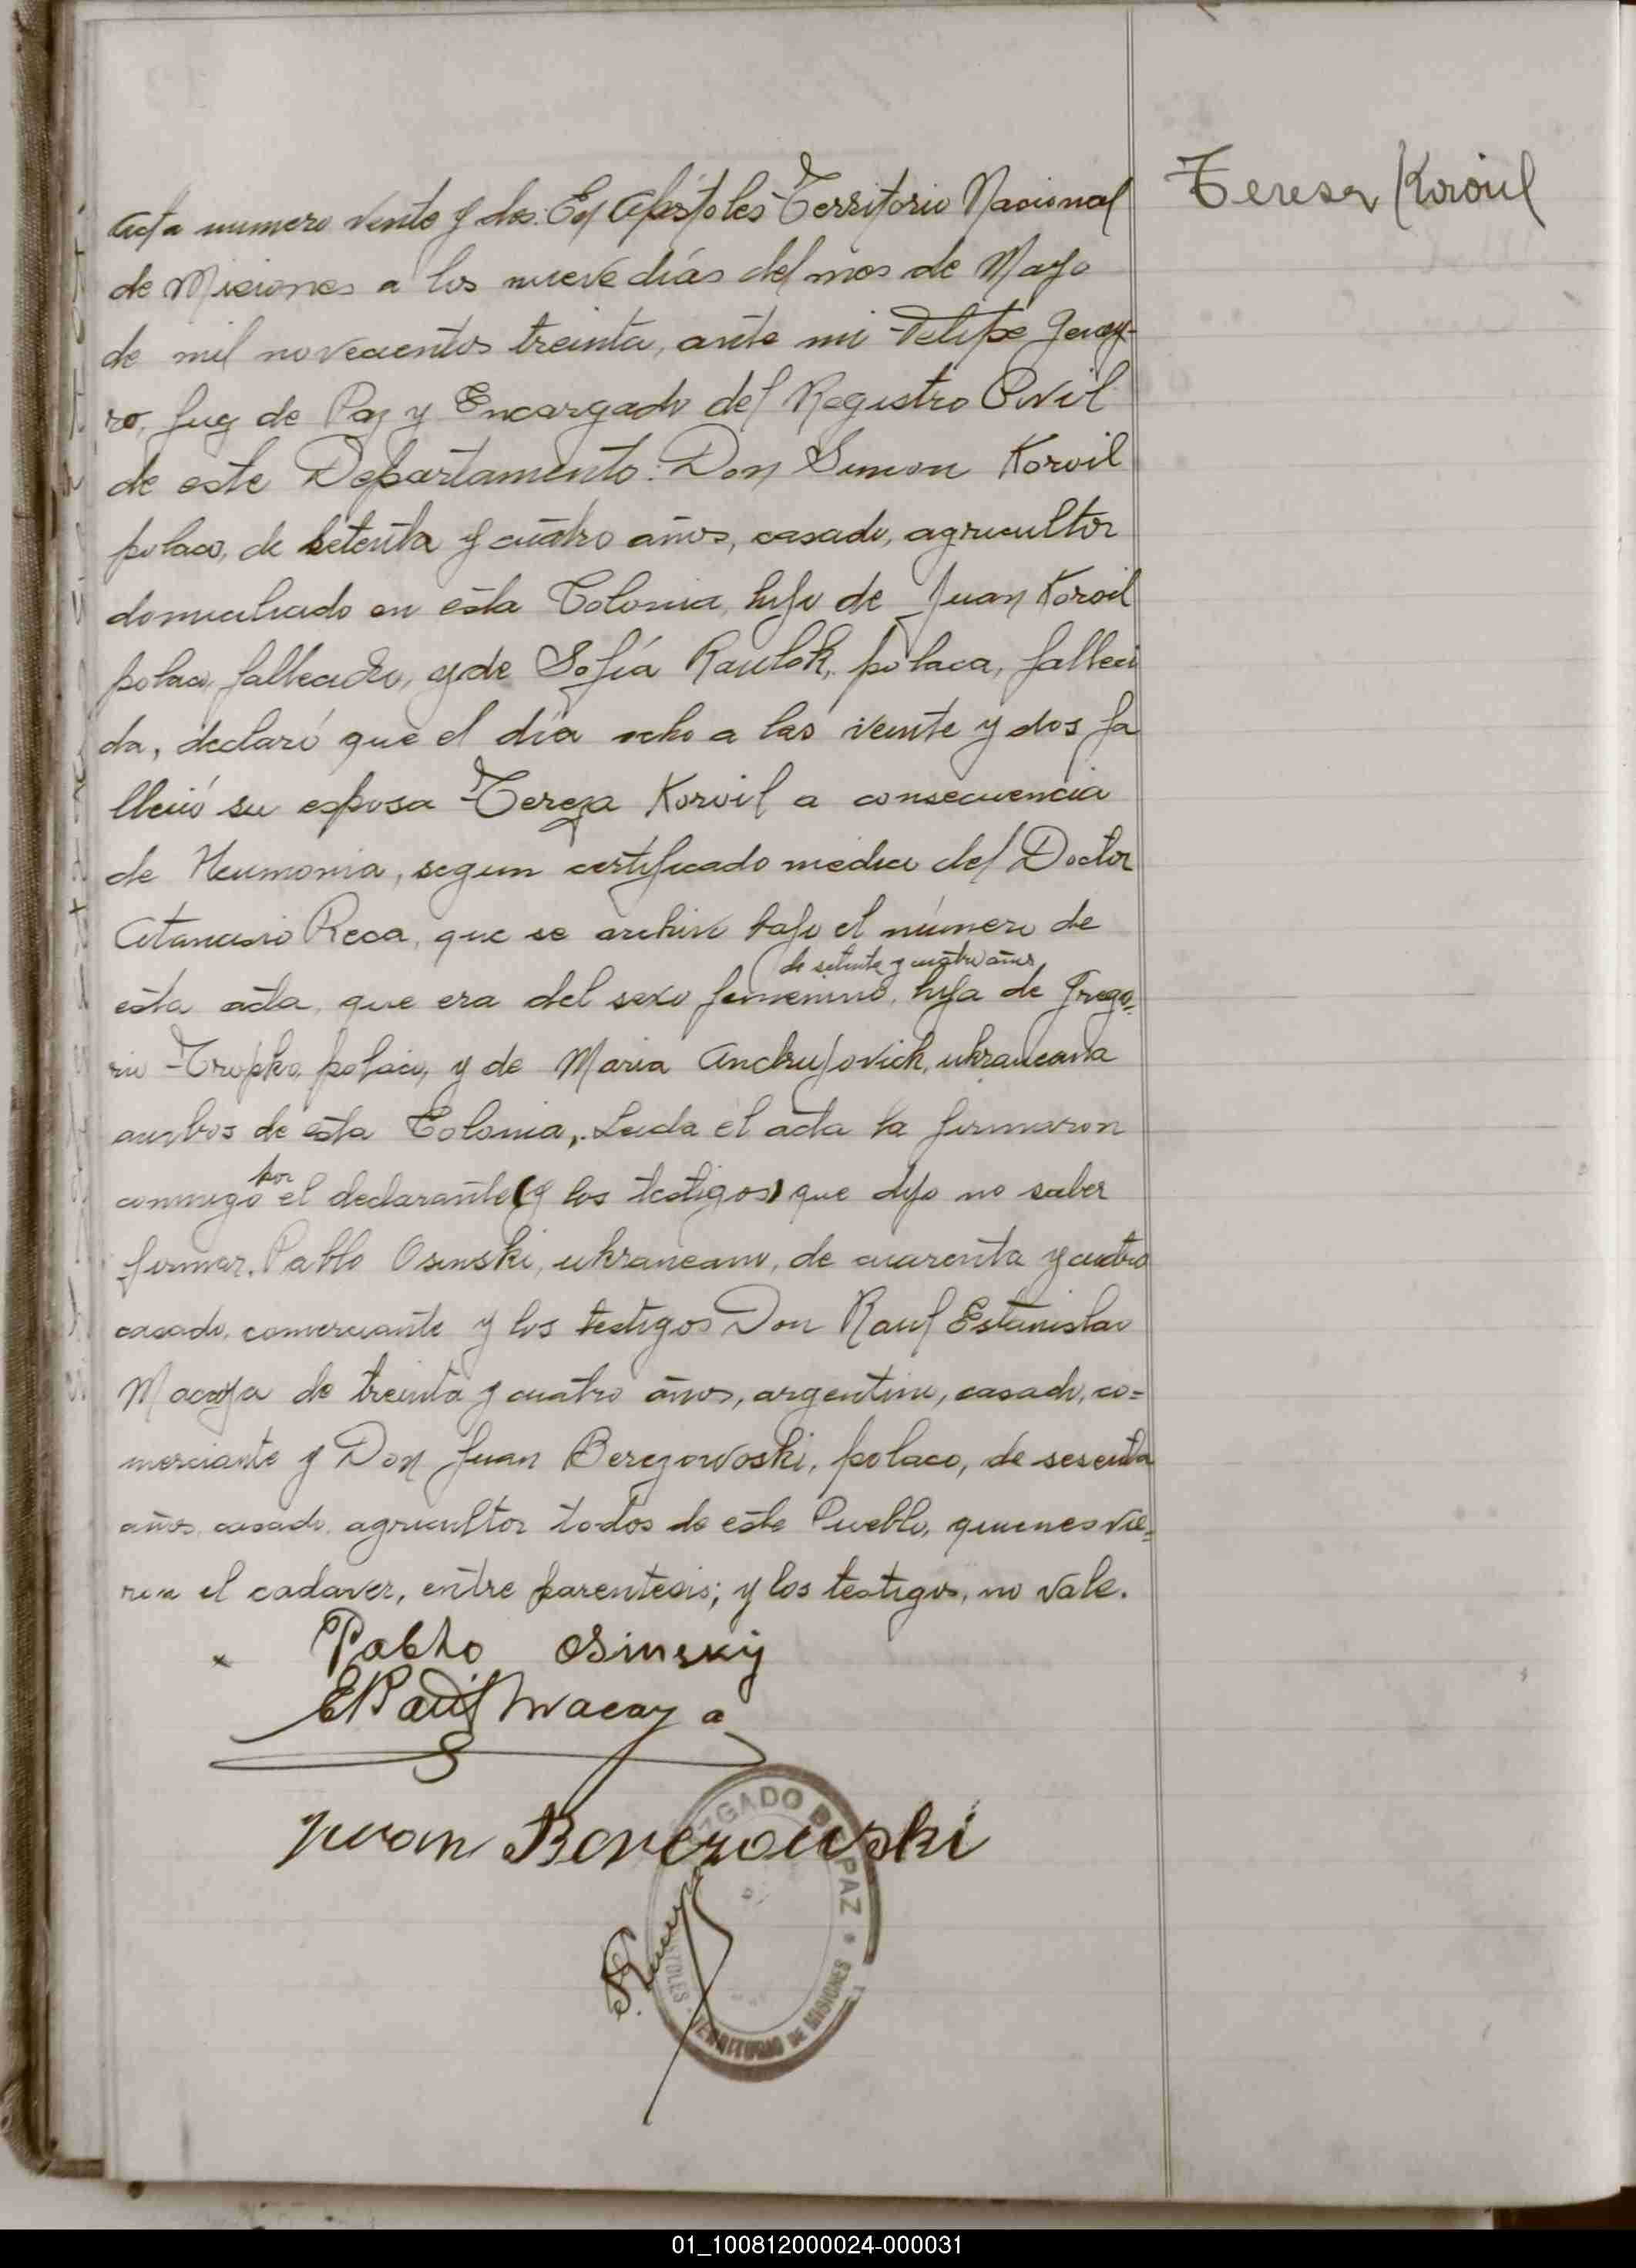 Teresa Koroil
Acta numero vente y dos. En Apóstoles Territorio Nacional
de Misiones a los nueve días del mes de Mayo
de mil novecientos treinta, ante mi Felipe
ro, Juez de Paz y Encargado del Registro Civil
de este Departamento: Don Simon Koroil
polaco, de setenta y cuatro años, casado, agricultor
domiciliado en esta Colonia, hijo de Juan Koroil
polaco, fallecido, y de Sofía Raulok, polaca, falleci
da, declaró que el día ocho a las veinte y dos fa
lleció su esposa Tereza Koroil a consecuencia
de Neumonia, segun certificado medico del Doctor
Atanasio Reca, que se archivo bajo el número de
de setenta y cuatro años,
esta acta, que era del sexo femenino, hija de Grego=
rio Tropko, polaco, y de Maria Andrujovich, ukraneana
ambos de esta Colonia,. Leida el acta la firmaron
por
conmigo el declarante (y los testigos) que dijo no saber
firmar, Pablo Osinski, ukraneano, de cuarenta y cuatro
casado, comerciante y los testigos Don Raul Estanislao
Macaya de treinta y cuatro años, argentino, casado, co=
merciante y Don Juan Berezowoski, polaco, de sesenta
años, casado, agricultor todos de este Pueblo, quienes vie=
ron el cadaver, entre parentesis; y los testigos, no vale.
x Pablo Osinsky
E Raul Macaya
Juan Bererowski
ZGADO DE PAZ
STOLES - TERRITORIO DE MISIONES
01_100812000024-000031